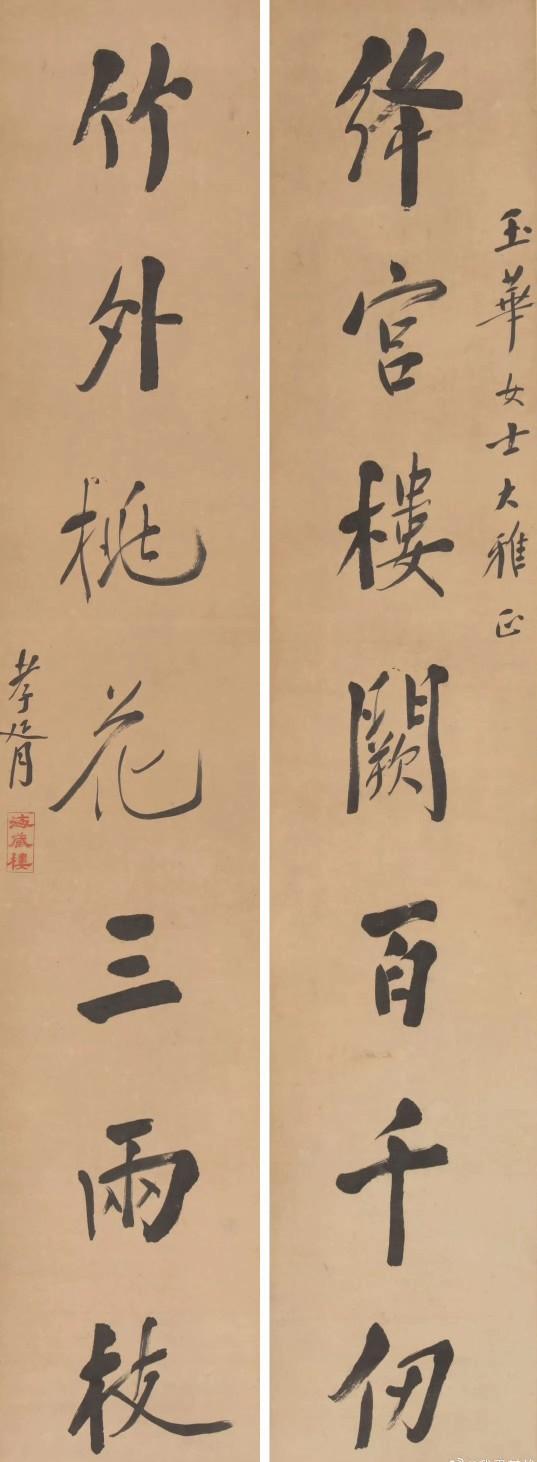 玉華女士大雅正
絳宮樓闕百千仞
竹外桃花三兩枝
孝胥
海藏樓